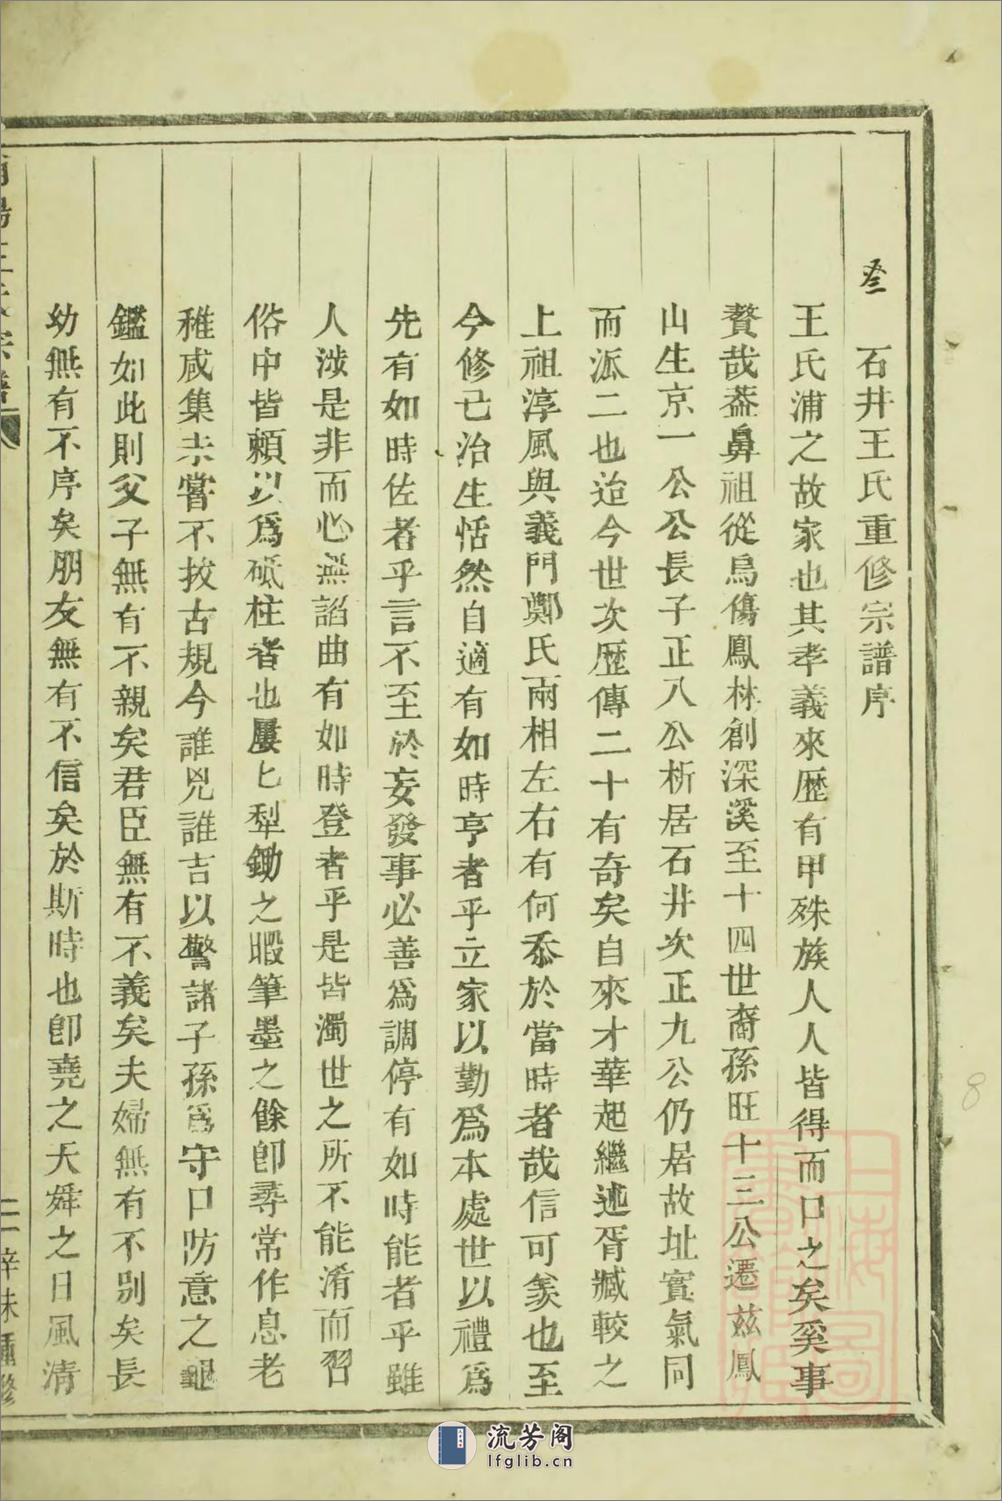 石井王氏重修宗譜序
王氏浦之故家也其孝義來歷有甲殊族人人皆得而口之矣奚事
贅哉葢鼻祖從烏傷鳳林創深溪至十四世裔孫旺十三公遷茲鳳
山生京一公公長子正八公析居石井次正九公仍居故址實氣同
而派二也迨今世次歷傳二十有奇矣自來才華起繼述胥臧較之
上祖淳風與義門鄭氏兩相左右有何忝於當時者哉信可羨也至
今修己治生恬然自適有如時亨者乎立家以勤爲本處世以禮爲
先有如時佐者乎言不至於妄發事必善爲調停有如時能者乎雖
人涉是非而心無謟曲有如時登者乎是皆濁世之所不能淆而習
俗中皆賴以爲砥柱者也屢匕犁鋤之暇筆墨之餘卽尋常作息老
稚咸集未嘗不按古規今誰兇誰吉以警諸子孫爲守口防意之龜
鑑如此則父子無有不親矣君臣無有不義矣夫婦無有不別矣長
幼無有不序矣朋友無有不信矣於斯時也卽堯之天舜之日風清
王氏宗譜
二 辛未重修
上海圖書館藏
8
流芳阁
lfglib.cn